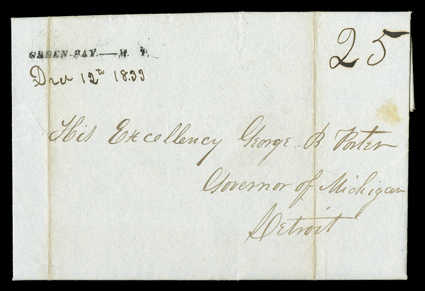 GREEN-BAY.—M. T.
25
Decr 12th 1833
His Excellency George B Porter
Governor of Michigan
Detroit